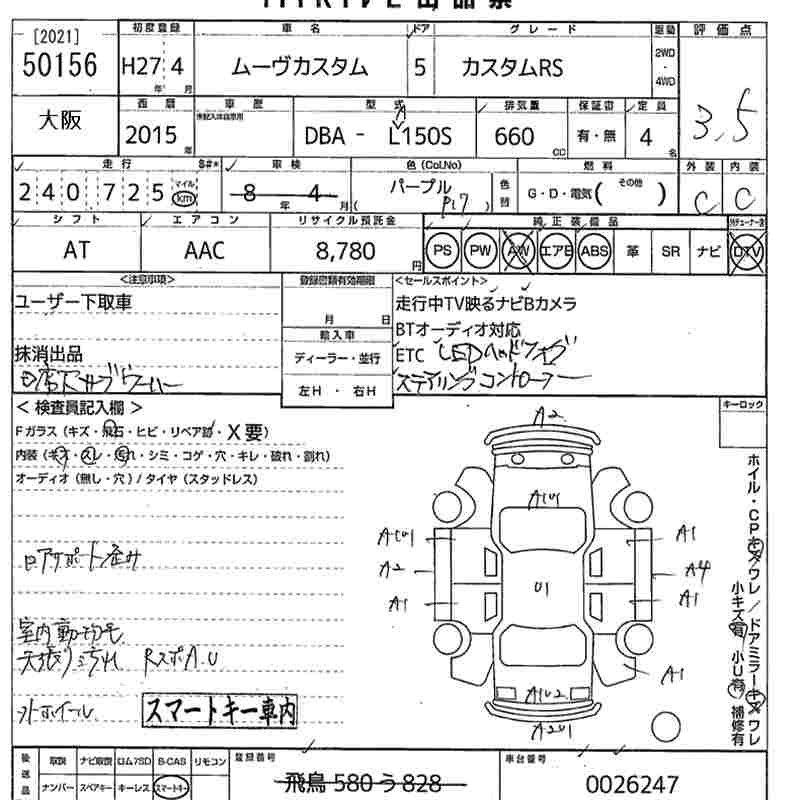 [2021] 初度登録 車名 ドア グレード 駆動 評価点
50156 H27 4 ムーヴカスタム 5 カスタムRS 2WD・4WD 3.5
年 月
大阪 西暦 車歴 型式 排気量 保証書 定員
2015 未記入は自家用 DBA - L150S 660 有・無 4
年 A CC 名
走行 S#* 車検 色(Col.No) 燃料 外装 内装
240725 マイル km 8 4 パープル 色替 G・D・電気( その他 ) C C
年 月 ( P17 )
シフト エアコン リサイクル預託金 純正装備品
AT AAC 8,780 PS PW AW エアB ABS 革 SR ナビ DTV
円
<注意事項> 登録書類有効期限 <セールスポイント>
ユーザー下取車 月 日 走行中TV映るナビBカメラ
輸入車 BTオーディオ対応
抹消出品 ディーラー・並行 ETC LEDヘッドフォグ
左H ・ 右H ステアリングコントローラー
< 検査員記入欄 > キーロック
Fガラス (キズ・飛石・ヒビ・リペア跡・X要)
内装 (キズ・スレ・汚れ・シミ・コゲ・穴・キレ・破れ・割れ)
オーディオ (無し・穴) / タイヤ (スタッドレス)
ホイル・CPキズワレ/ドアミラーキズワレ
小キズ有 小U有 補修有
A2
A(U)
A(U) A1
A2 A4
U1
A1 A1
A1
AU2
ロアサポート歪み
天張り汚れ RスポA.U
外ホイール スマートキー車内
後送品 取説 ナビ取説 ロム/SD B-CAS リモコン 登録番号 車台番号
ナンバー スペアキー キーレス スマートキー 飛鳥 580 う 828 0026247